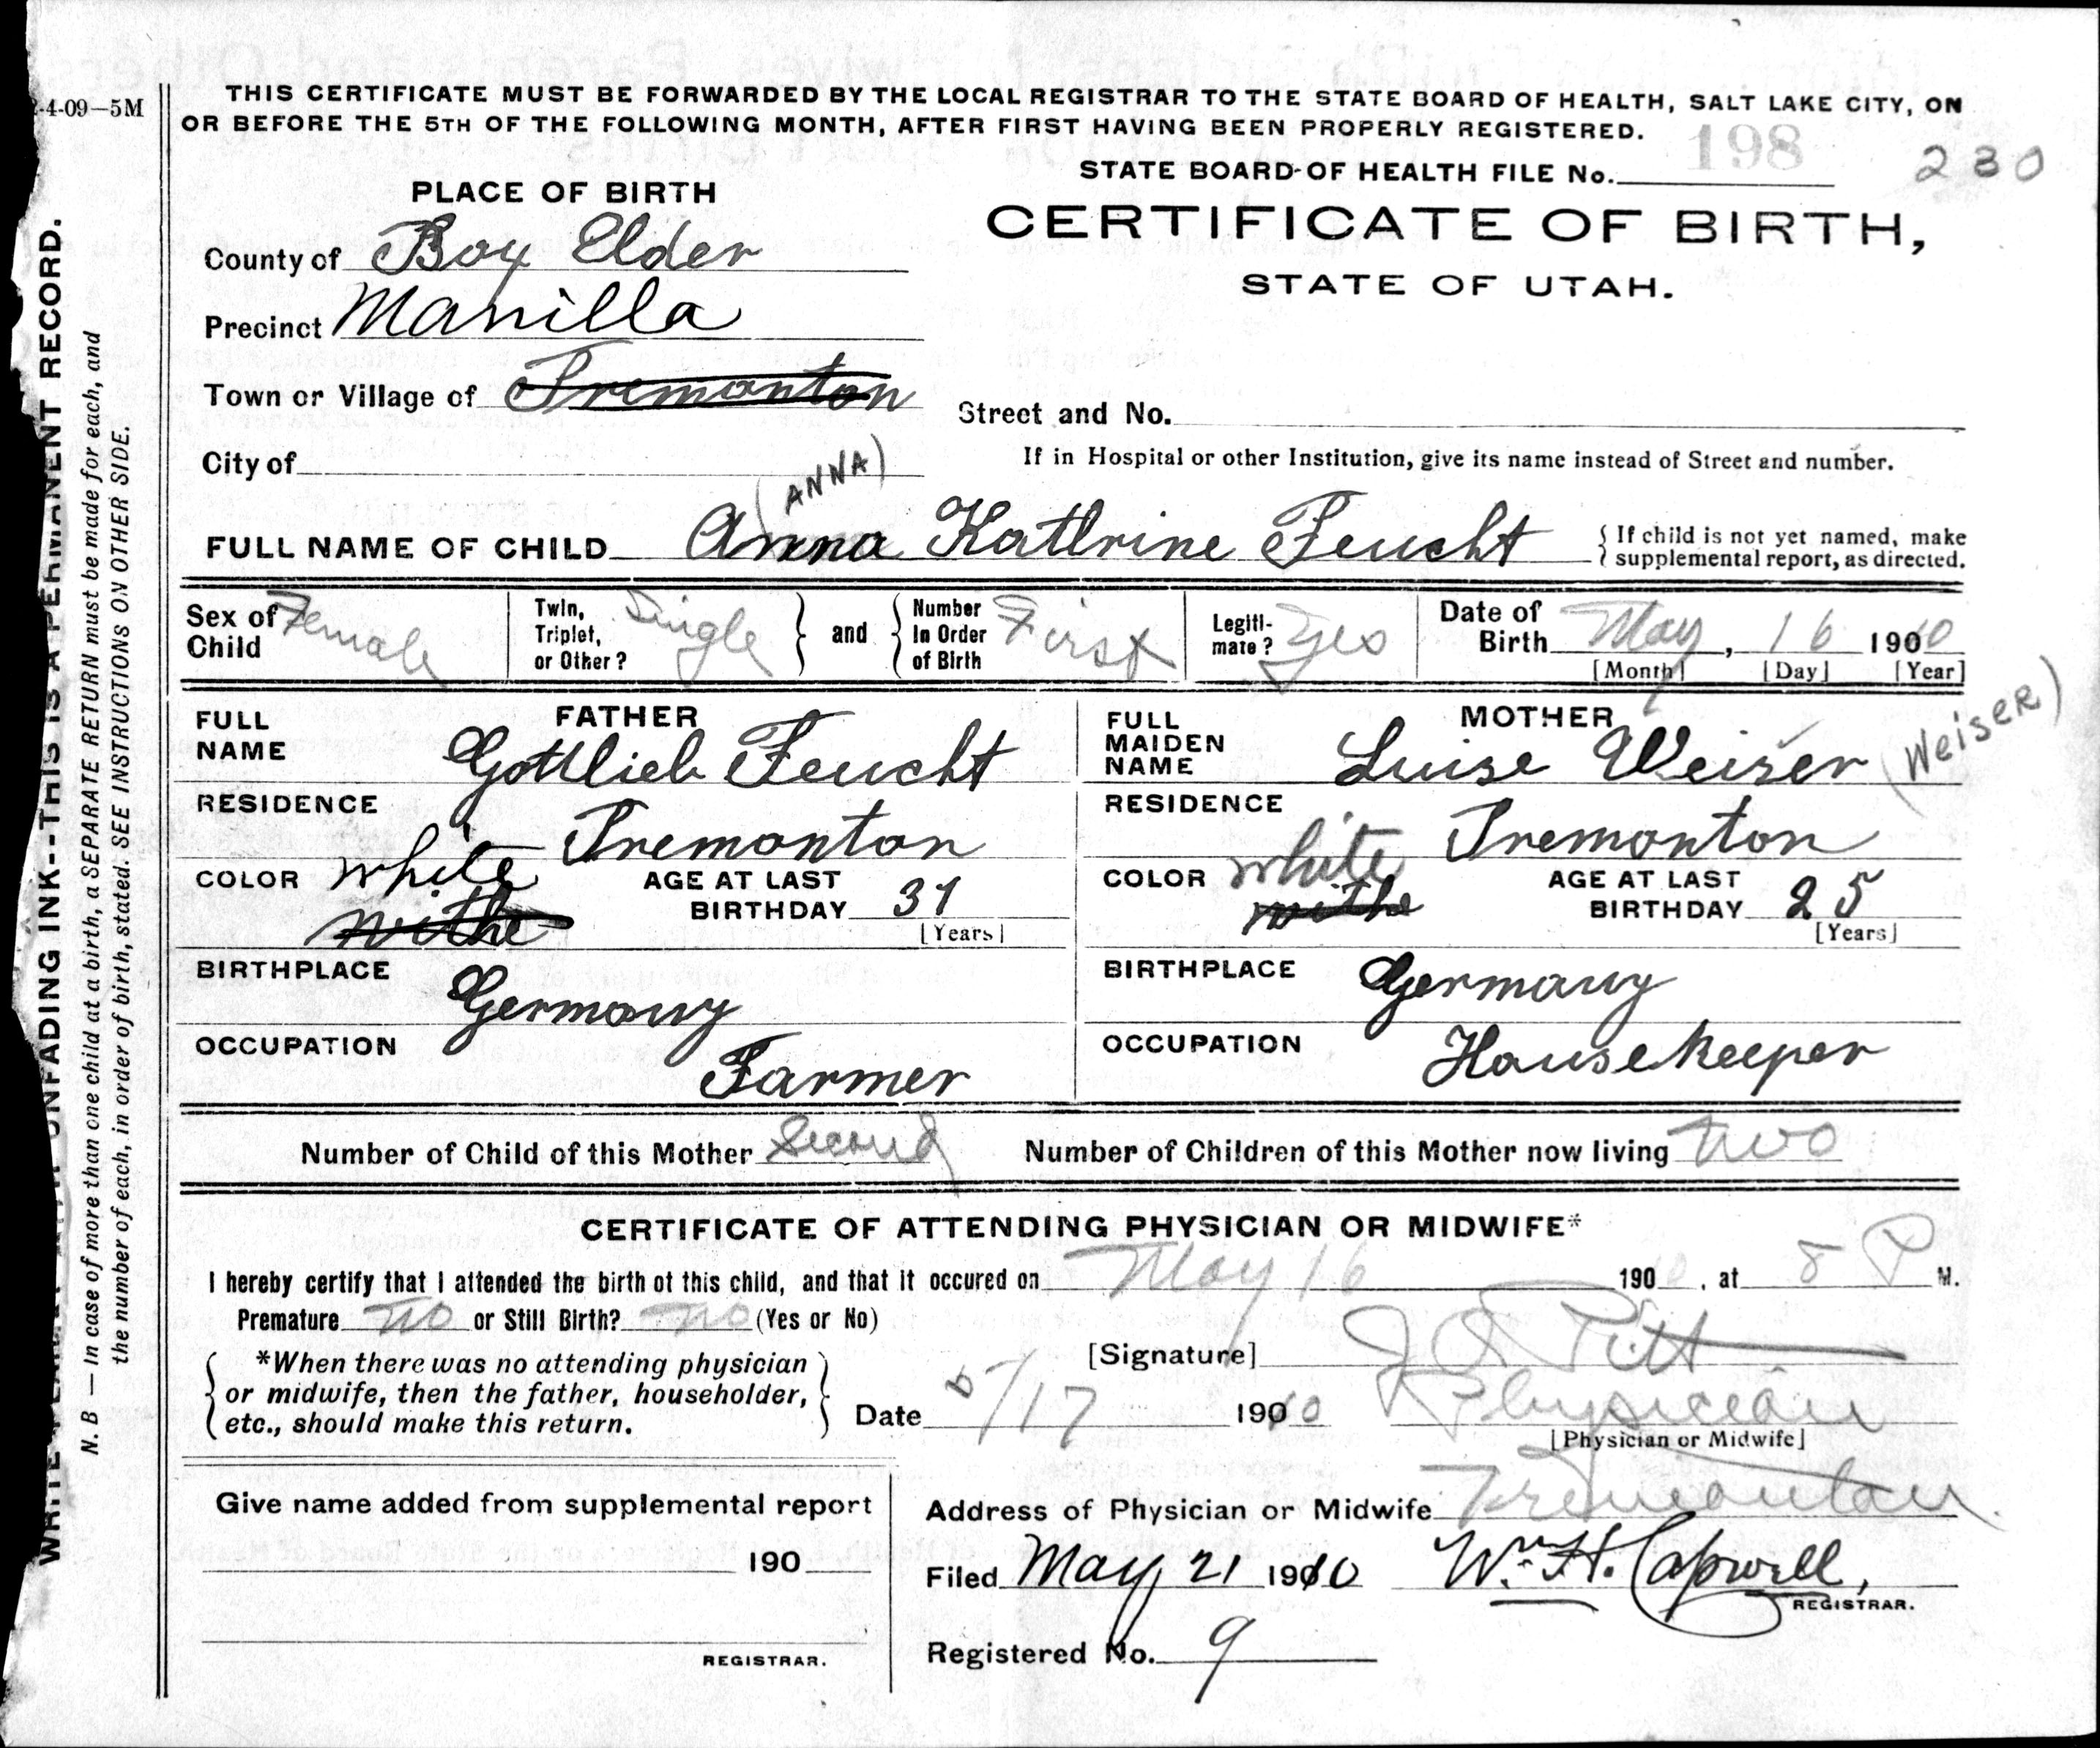 2-4-09—5M
THIS CERTIFICATE MUST BE FORWARDED BY THE LOCAL REGISTRAR TO THE STATE BOARD OF HEALTH, SALT LAKE CITY, ON
OR BEFORE THE 5TH OF THE FOLLOWING MONTH, AFTER FIRST HAVING BEEN PROPERLY REGISTERED.
STATE BOARD OF HEALTH FILE No. 198 230
PLACE OF BIRTH
CERTIFICATE OF BIRTH,
STATE OF UTAH.
County of Box Elder
Precinct Manilla
Town or Village of Tremonton
Street and No.
City of
If in Hospital or other Institution, give its name instead of Street and number.
(ANNA)
FULL NAME OF CHILD Anna Kathrine Feucht { If child is not yet named, make
supplemental report, as directed.
Sex of Child Female
Twin, Triplet, or Other? Single } and { Number In Order of Birth First
Legitimate? Yes
Date of Birth May, 16 1900 10
[Month] [Day] [Year]
FATHER
FULL NAME Gottlieb Feucht
RESIDENCE Tremonton
COLOR white withe
AGE AT LAST BIRTHDAY 31
[Years]
BIRTHPLACE Germany
OCCUPATION Farmer
MOTHER
FULL MAIDEN NAME Luise Weiser (WeiseR)
RESIDENCE Tremonton
COLOR white withe
AGE AT LAST BIRTHDAY 25
[Years]
BIRTHPLACE Germany
OCCUPATION Housekeeper
Number of Child of this Mother Second Number of Children of this Mother now living two
CERTIFICATE OF ATTENDING PHYSICIAN OR MIDWIFE*
I hereby certify that I attended the birth of this child, and that it occured on May 16 190 10, at 8 P M.
Premature no or Still Birth? no (Yes or No)
*When there was no attending physician
or midwife, then the father, householder,
etc., should make this return.
[Signature] Pitt
Date 5/17 190 10 Physician
[Physician or Midwife]
Give name added from supplemental report
190
REGISTRAR.
Address of Physician or Midwife Tremonton
Filed May 21 1910 Wm. H. Capwell,
REGISTRAR.
Registered No. 9
WRITE PLAINLY WITH UNFADING INK--THIS IS A PERMANENT RECORD.
N. B — In case of more than one child at a birth, a SEPARATE RETURN must be made for each, and
the number of each, in order of birth, stated. SEE INSTRUCTIONS ON OTHER SIDE.